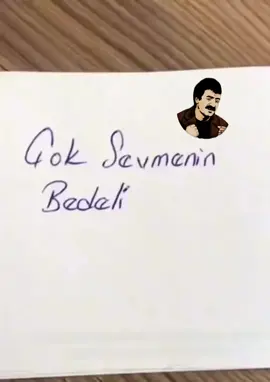 Çok Sevmenin
Bedeli